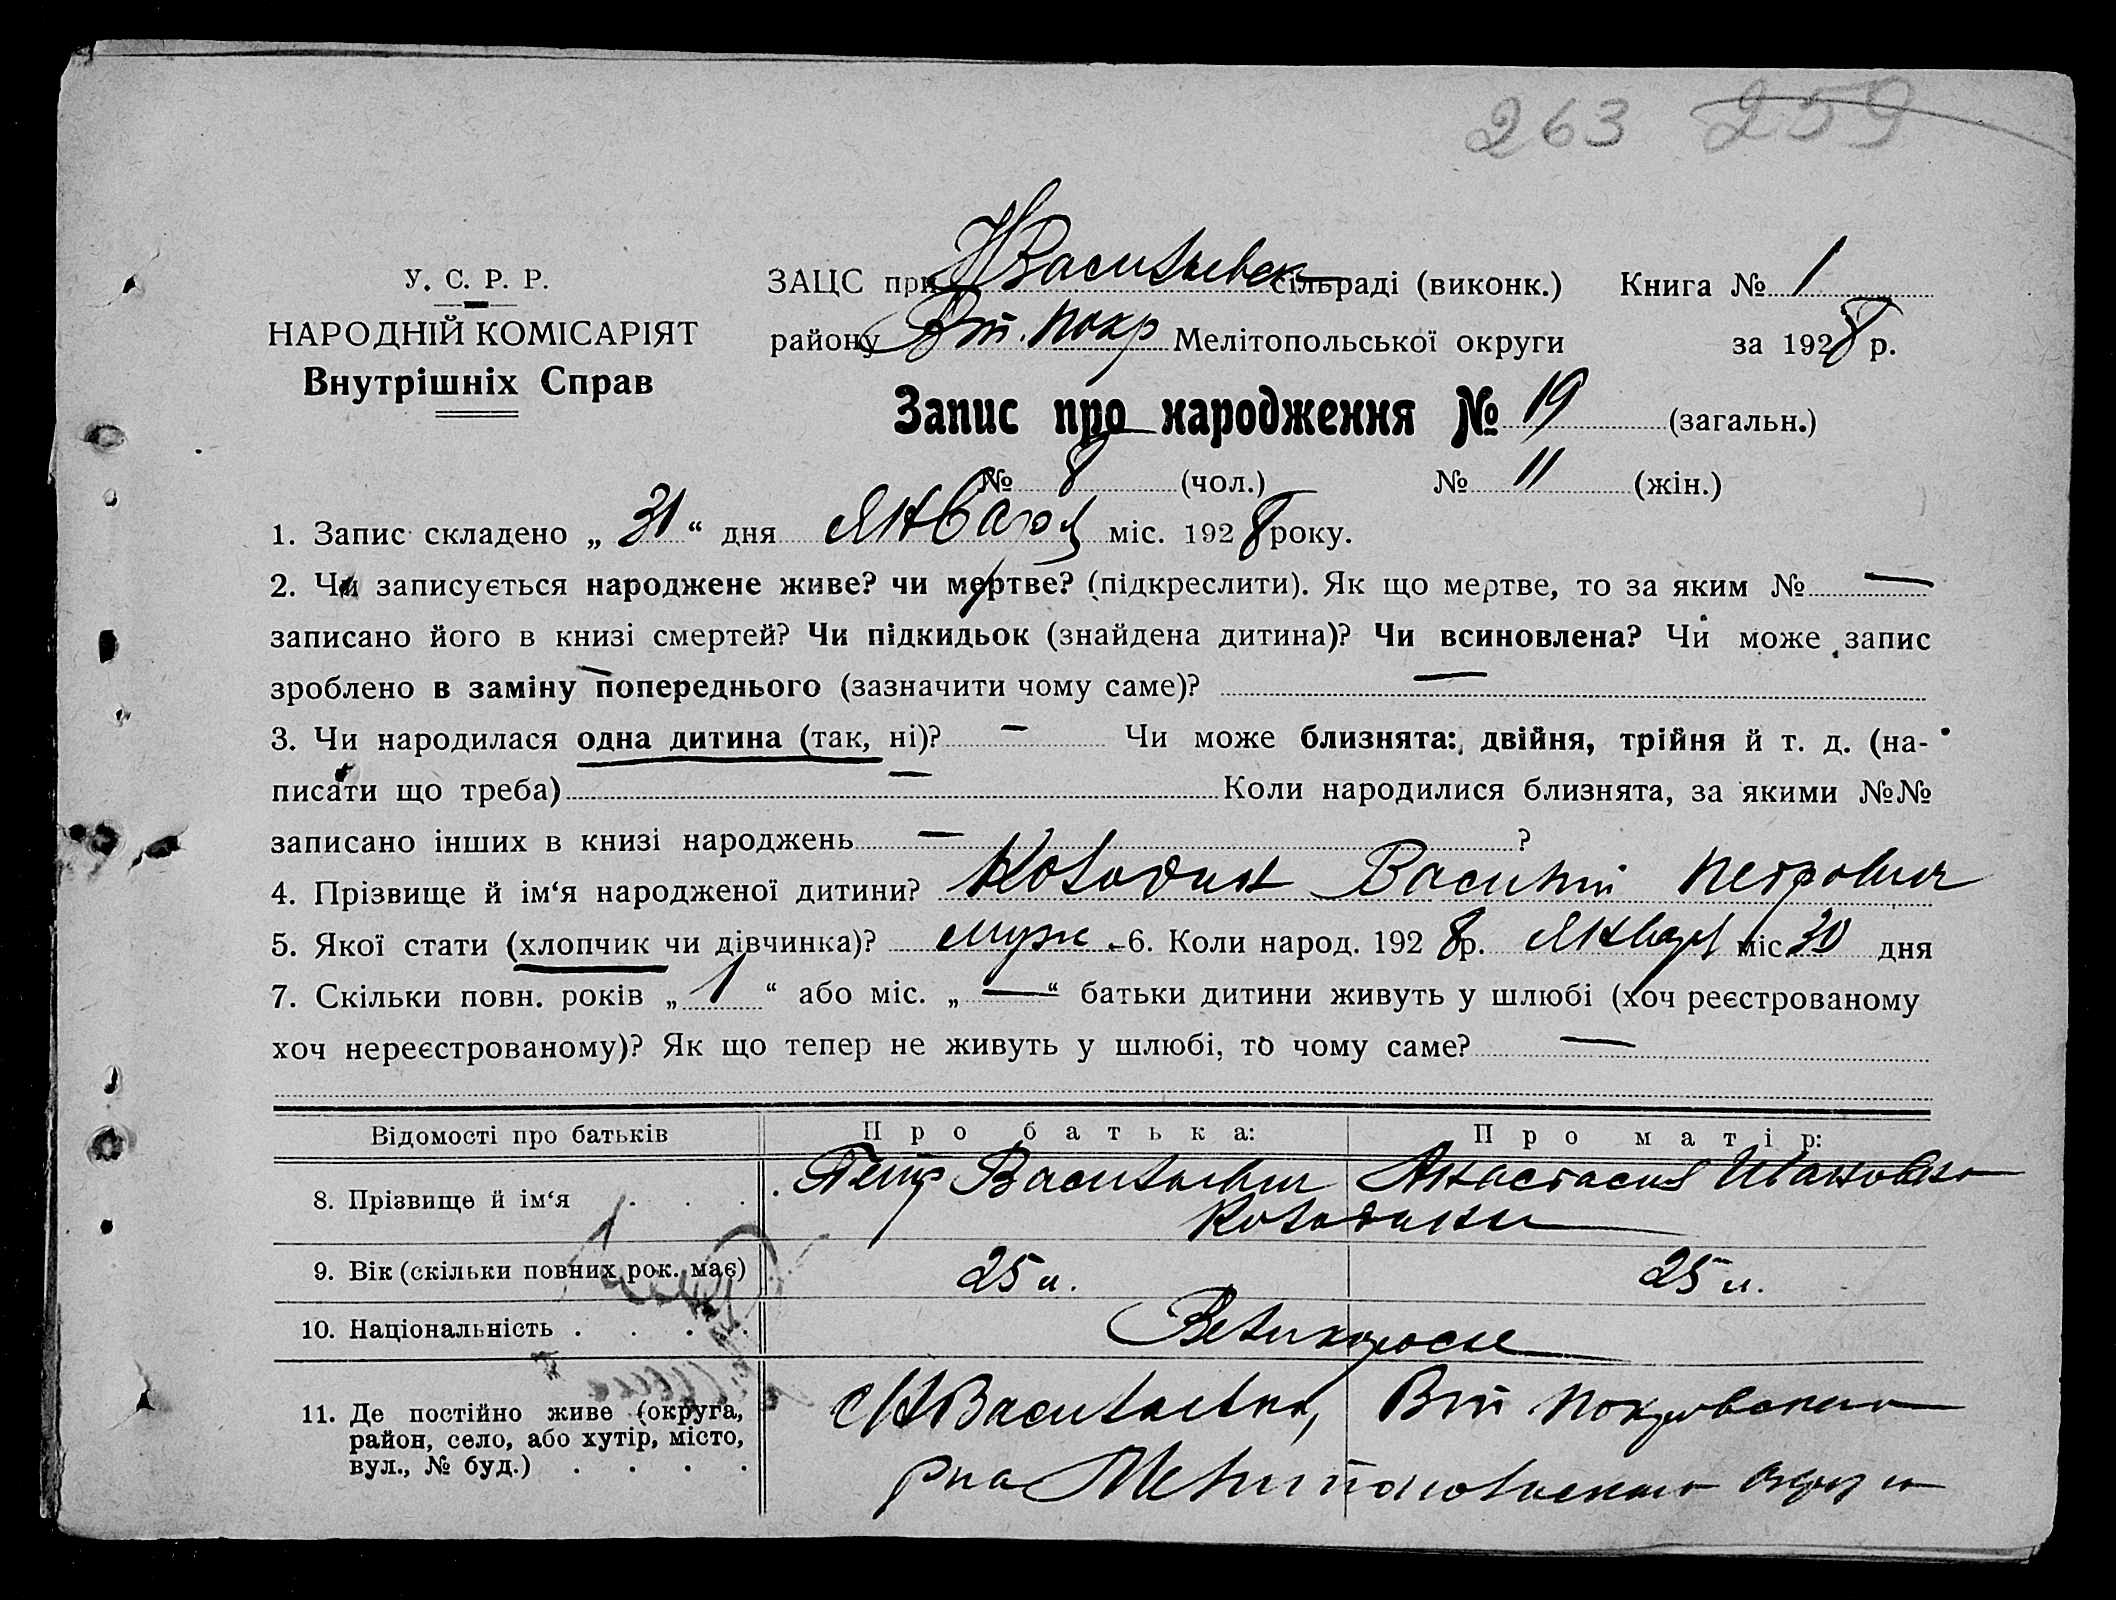 263 259
У. С. Р. Р.
НАРОДНІЙ КОМІСАРІЯТ
Внутрішніх Справ
ЗАЦС при Н Васильевск сільраді (виконк.) Книга № 1
району Вт. Покр Мелітопольської округи за 1928 р.
Запис про народження № 19 (загальн.)
№ 8 (чол.) № 11 (жін.)
1. Запис складено „ 31 “ дня Января міс. 1928 року.
2. Чи записується народжене живе? чи мертве? (підкреслити). Як що мертве, то за яким № —
записано його в книзі смертей? Чи підкидьок (знайдена дитина)? Чи всиновлена? Чи може запис
зроблено в заміну попереднього (зазначити чому саме)? —
3. Чи народилася одна дитина (так, ні)? — Чи може близнята: двійня, трійня й т. д. (на-
писати що треба) — Коли народилися близнята, за якими №№
записано інших в книзі народжень — ?
4. Прізвище й ім‘я народженої дитини? Колодин Василий Петрович
5. Якої стати (хлопчик чи дівчинка)? муж. 6. Коли народ. 1928 р. Января міс. 30 дня
7. Скільки повн. років „ 1 “ або міс. „ — “ батьки дитини живуть у шлюбі (хоч реєстрованому
хоч нереєстрованому)? Як що тепер не живуть у шлюбі, то чому саме? —
Відомості про батьків Про батька: Про матір:
8. Прізвище й ім‘я . . . Петр Васильевич Анастасия Ивановна
Колодины
9. Вік (скільки повних рок. має) 25 л. 25 л.
10. Національність . . . Великороссы
11. Де постійно живе (округа,
район, село, або хутір, місто,
вул., № буд.) . . . .
с Н Васильевка, Вт Покровского
р-на Мелитопольского округа